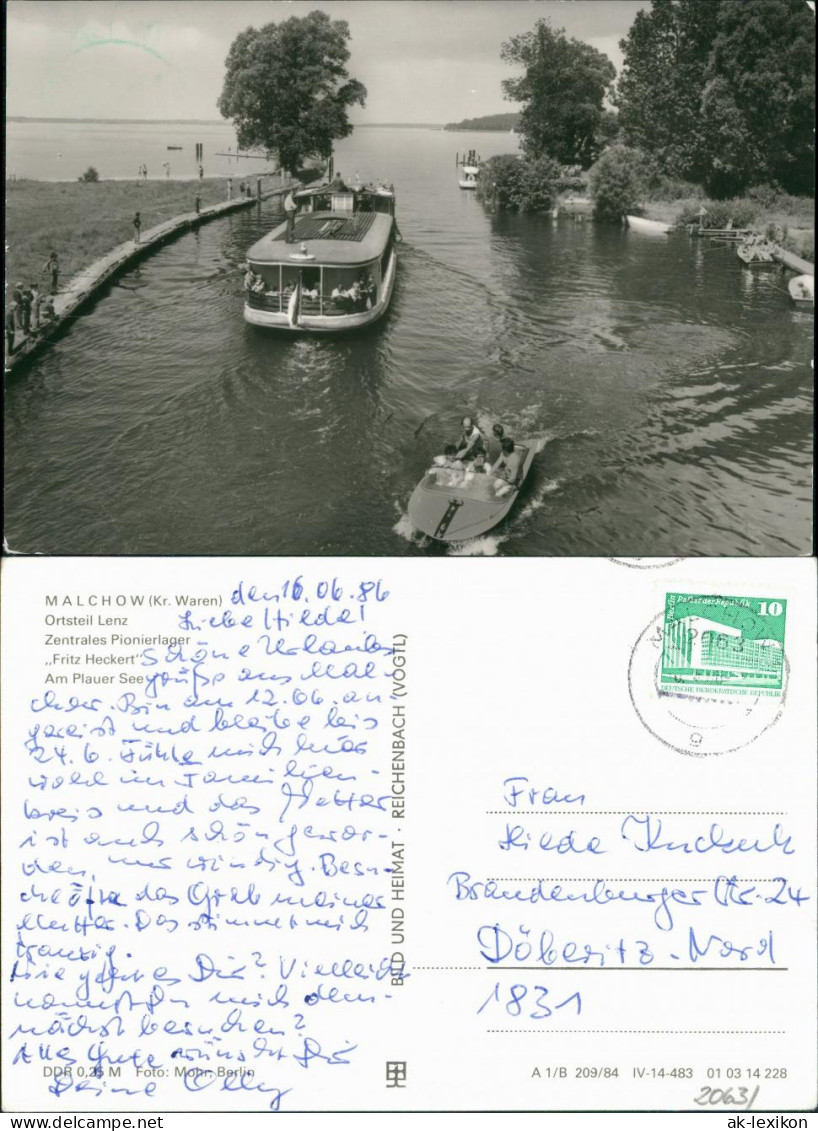 MALCHOW (Kr. Waren)
Ortsteil Lenz
Zentrales Pionierlager
„Fritz Heckert"
Am Plauer See
den 16.06.86
Liebe Hilde!
Schöne Urlaubs
grüße aus Mal-
chow. Bin am 12.06. an-
gereist und bleibe bis
24.6. Fühle mich hier
wohl im Familien-
kreis und das Wetter
ist auch schön gewor-
den, nur windig. Besu-
che öfter das Grab meiner
Mutter. Das stimmt mich
traurig.
Wie geht es Dir? Vielleicht
kannst Du mich dem-
nächst besuchen?
Alles Gute wünscht Dir
Deine Olly
DDR 0,25 M Foto: Mohr, Berlin
BILD UND HEIMAT · REICHENBACH (VOGTL)
Berlin Palast der Republik 10
DEUTSCHE DEMOKRATISCHE REPUBLIK
2063
g
Frau
Hilde
Brandenburger Str. 24
Döberitz-Nord
1831
A 1/B 209/84 IV-14-483 01 03 14 228
2063/
www.ak-ansichtskarten.de
ak-lexikon